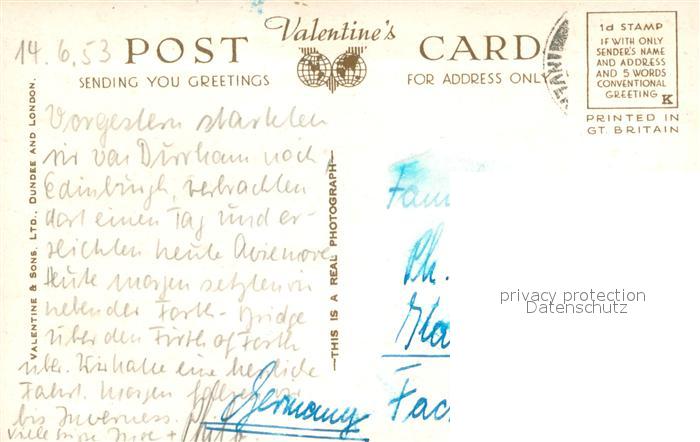 14.6.53
Valentine's
POST CARD
SENDING YOU GREETINGS
FOR ADDRESS ONLY
1d STAMP
IF WITH ONLY
SENDER'S NAME
AND ADDRESS
AND 5 WORDS
CONVENTIONAL
GREETING
K
PRINTED IN
GT. BRITAIN
VALENTINE & SONS, LTD., DUNDEE AND LONDON.
Vorgestern starteten
wir von Durrham nach
Edinburgh, verbrachten
dort einen Tag und er-
reichten heute Aviemore
Heute morgen setzten wir
neben der Forth-Bridge
über den Firth of Forth
über. Wir hatten eine herrliche
Fahrt. Morgen wir
bis Inverness.
Viele
—THIS IS A REAL PHOTOGRAPH—
Fam
Ph.
Germany
privacy protection
Datenschutz